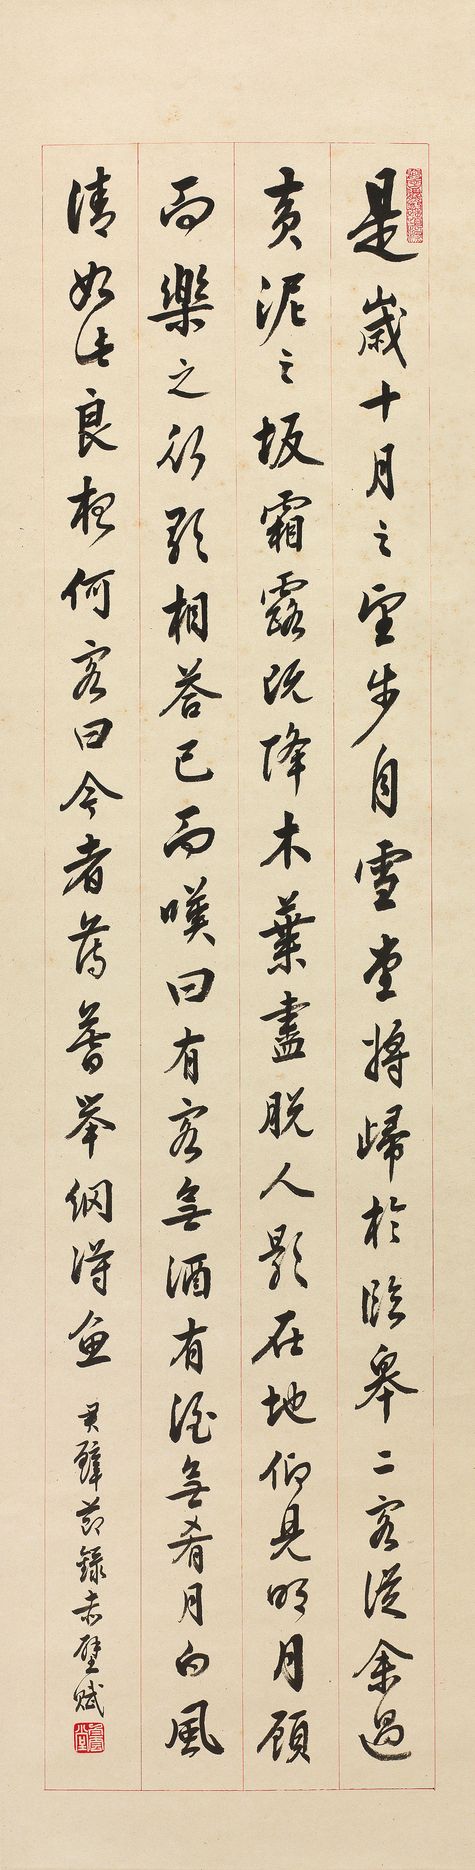 是歲十月之望步自雪堂將歸於臨皋二客從余過
黃泥之坂霜露既降木葉盡脫人影在地仰見明月顧
而樂之行歌相答已而嘆曰有客無酒有酒無肴月白風
清如此良夜何客曰今者薄暮舉網得魚
君璧節錄赤壁賦